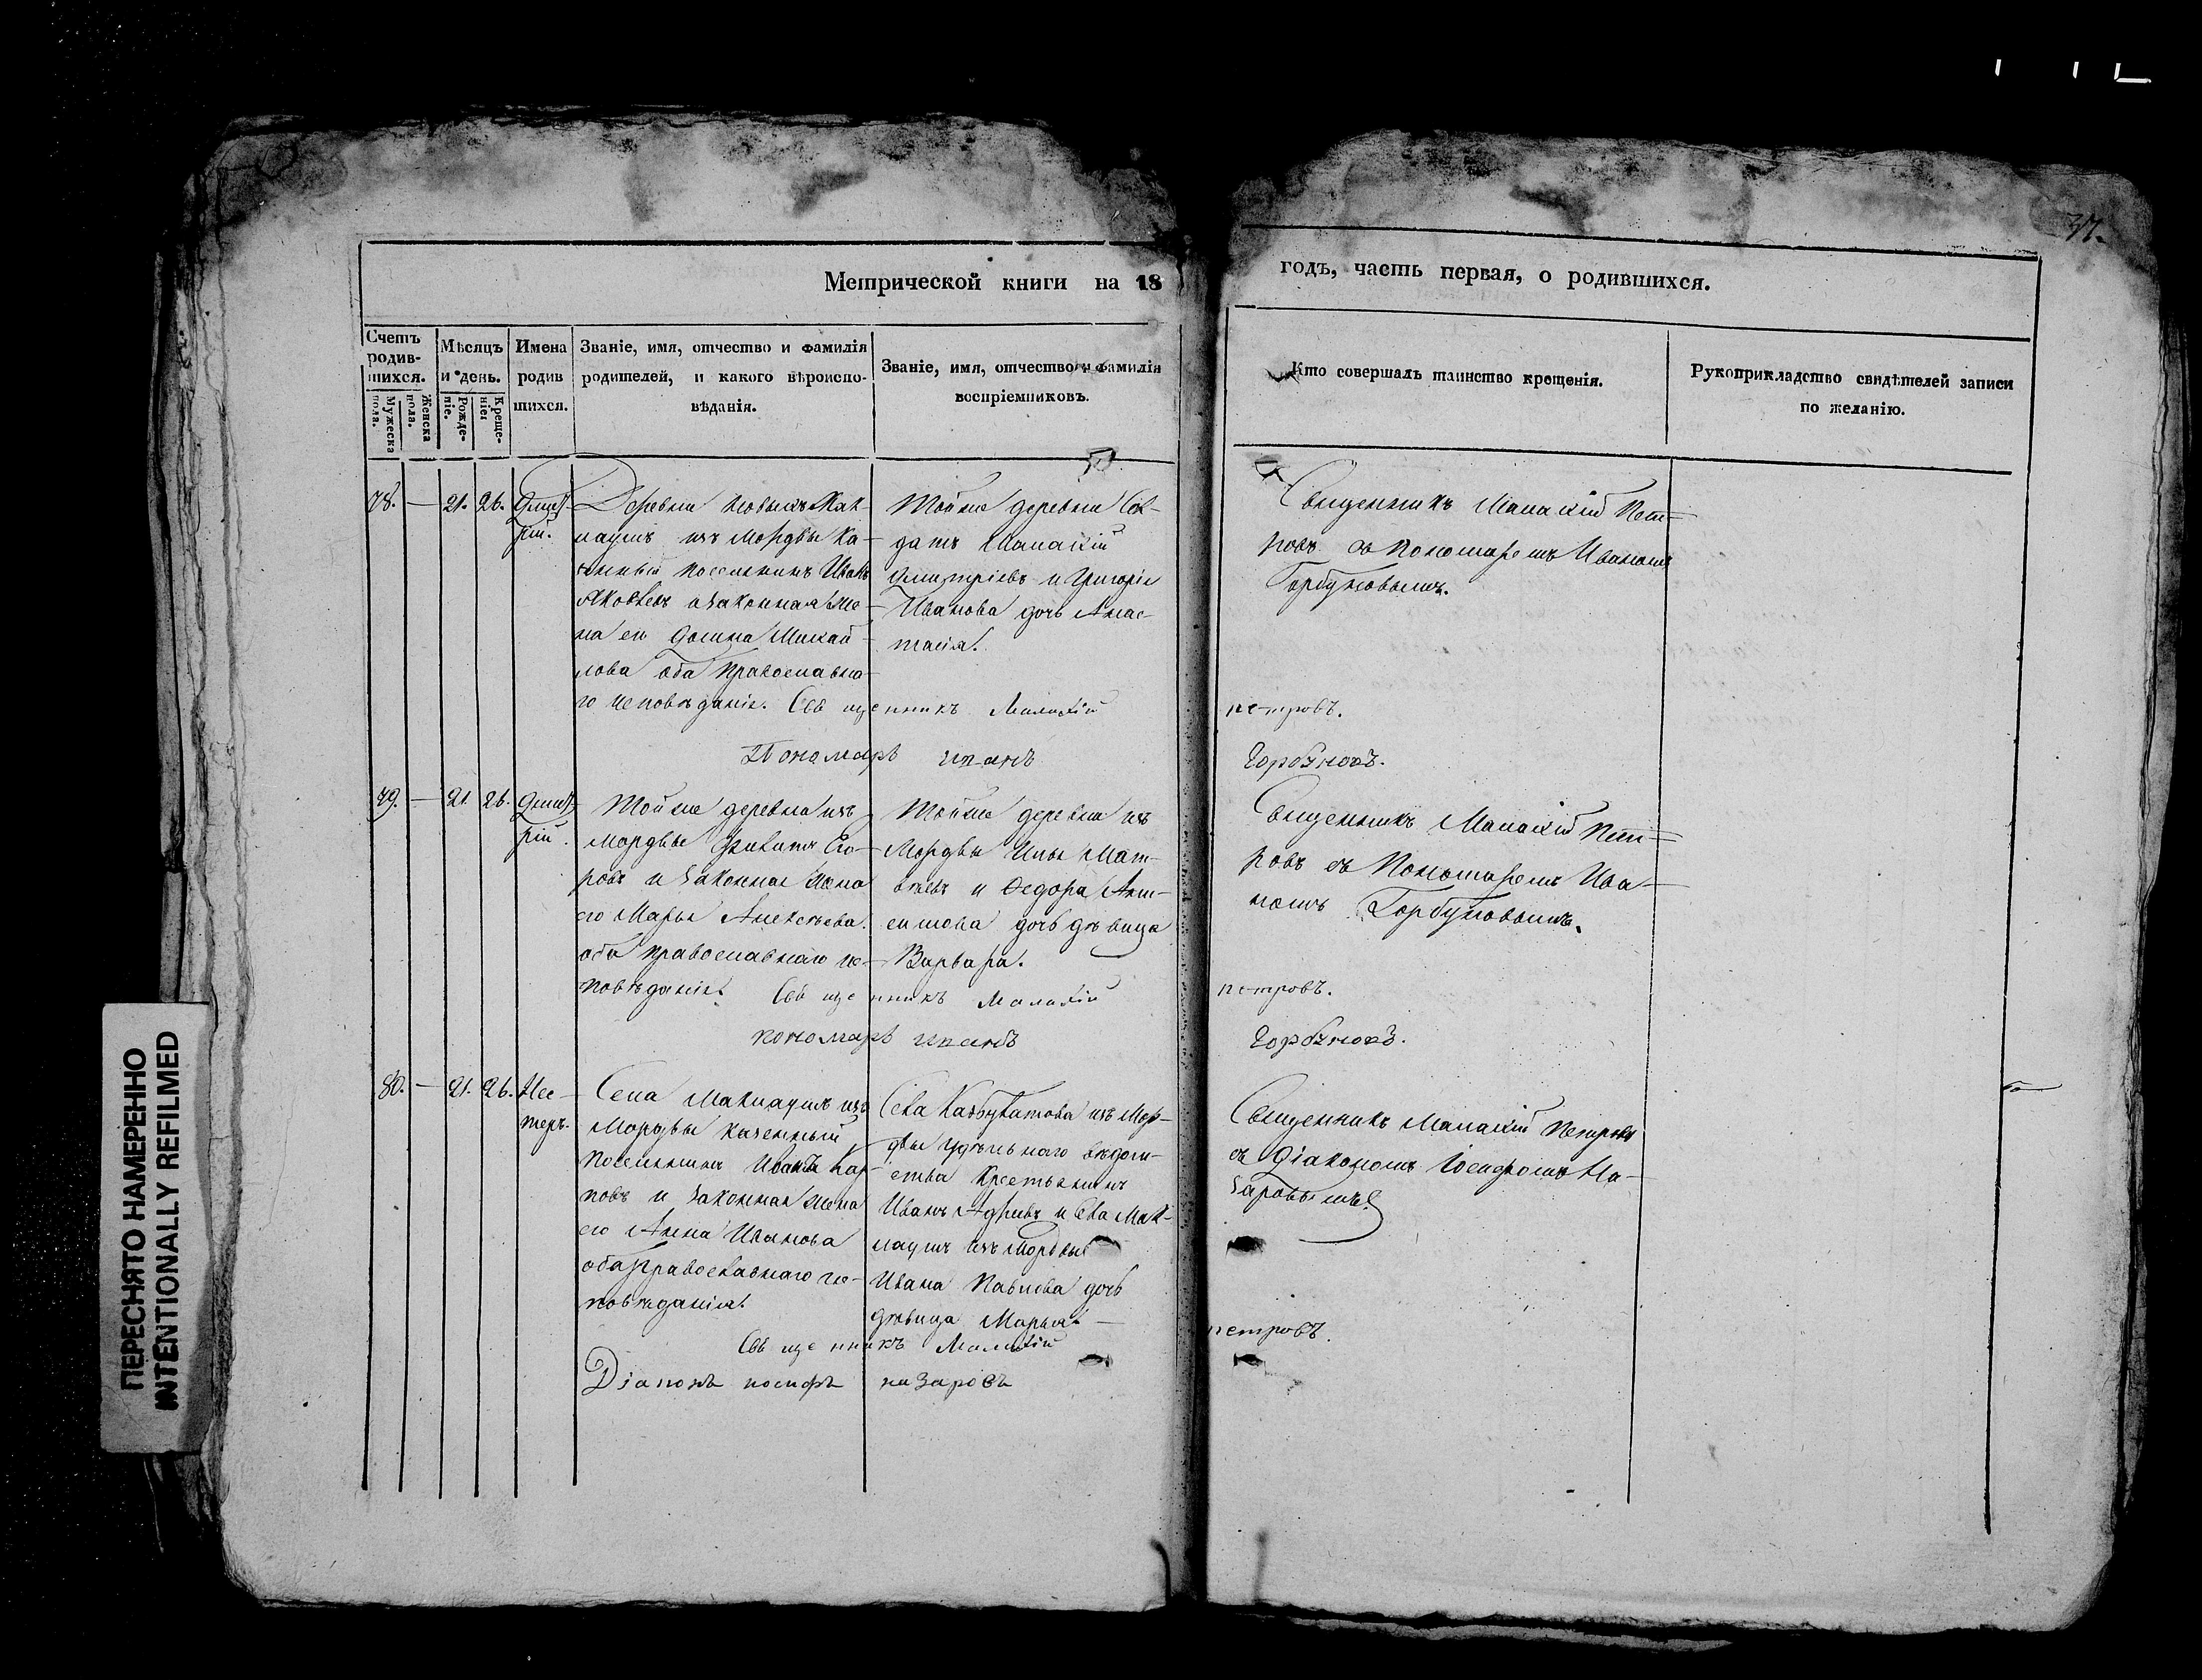 37.
Метрической книги на 18
годъ, часть первая, о родившихся.
Счетъ родив-шихся.
Мужеска пола.
Женска пола.
Мѣсяцъ и день.
Рожде-ніе.
Креще-ніе
Имена родив шихся.
Званіе, имя, отчество и фамилія
родителей, и какого вѣроиспо-
вѣданія.
Званіе, имя, отчество и фамилія
воспріемниковъ.
Кто совершалъ таинство крещенія.
Рукоприкладство свидѣтелей записи
по желанію.
78. — 21. 26. Дмит-
рій.
Деревни Новыхъ Мак-
лаушъ изъ Мордвы Ка-
зенный поселянинъ Иванъ
Яковлевъ и законная же-
на ег Михай-
лова оба православна-
го исповѣданія. Священникъ Малахій
Пономарь иванъ
Тойже деревни Сол-
датъ Малахій
Дмитріевъ и Григорія
Иванова дочь Анас-
тасія.
Священникъ Малахій Пет-
ровъ съ Пономаремъ Иваномъ
Горбуновымъ.
петровъ.
Горбуновъ.
79. — 21 26. Дмит-
рій.
Тойже деревни изъ
Мордвы
ровъ и законная жена
его Марья Алексѣева.
оба православнаго ис-
повѣданія. Священникъ Малахій
пономарь иванъ
Тойже деревни изъ
Мордвы Илья Мат-
вѣевъ и Ѳедора
дочь дѣвица
Варвара.
Священникъ Малахій Пет-
ровъ съ Пономаремъ Ива-
номъ Горбуновымъ.
петровъ.
Горбуновъ.
80. — 21. 26. Нес-
теръ.
Села Маклаушъ изъ
Мордвы казенный
поселянинъ Иванъ Кар-
повъ и законная жена
его Анна Иванова
оба православнаго ис-
повѣданія.
Священникъ Малахій
Діаконъ иосифъ назаровъ
Села изъ Мор-
двы удѣльнаго вѣдом-
ства Крестьянинъ
Иванъ и Села Мак-
лаушъ изъ Мордвы
Ивана Павлова дочь
дѣвица Марья. —
Священникъ Малахій Петровъ
съ Діакономъ Іосифомъ На-
заровымъ.
петровъ.
ПЕРЕСНЯТО НАМЕРЕННО
INTENTIONALLY REFILMED